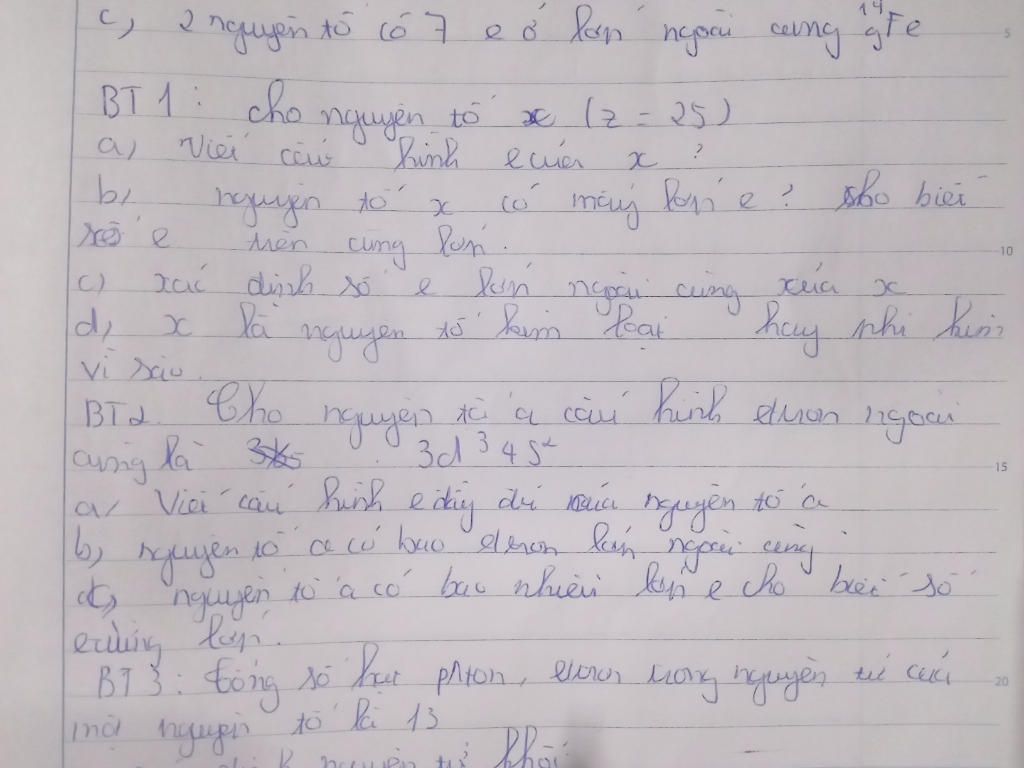 c, 2 nguyên tố có 7 e ở lớp ngoài cùng ¹⁴₉Fe
BT 1: cho nguyên tố x (z = 25)
a, Viết cấu hình e của x?
b, nguyên tố x có mấy lớp e? cho biết
số e trên cùng lớp.
c, xác định số e lớp ngoài cùng của x
d, x là nguyên tố kim loại hay phi kim
vì sao.
BT2. Cho nguyên tố a cấu hình elctron ngoài
cùng là 3d³4s²
a, Viết cấu hình e đầy đủ của nguyên tố a
b, nguyên tố a có bao elctron lớp ngoài cùng
c, nguyên tố a có bao nhiêu lớp e cho biết số
e từng lớp.
BT 3: tổng số hạt proton, elctron trong nguyên tử của
một nguyên tố là 13
nguyên tử khối